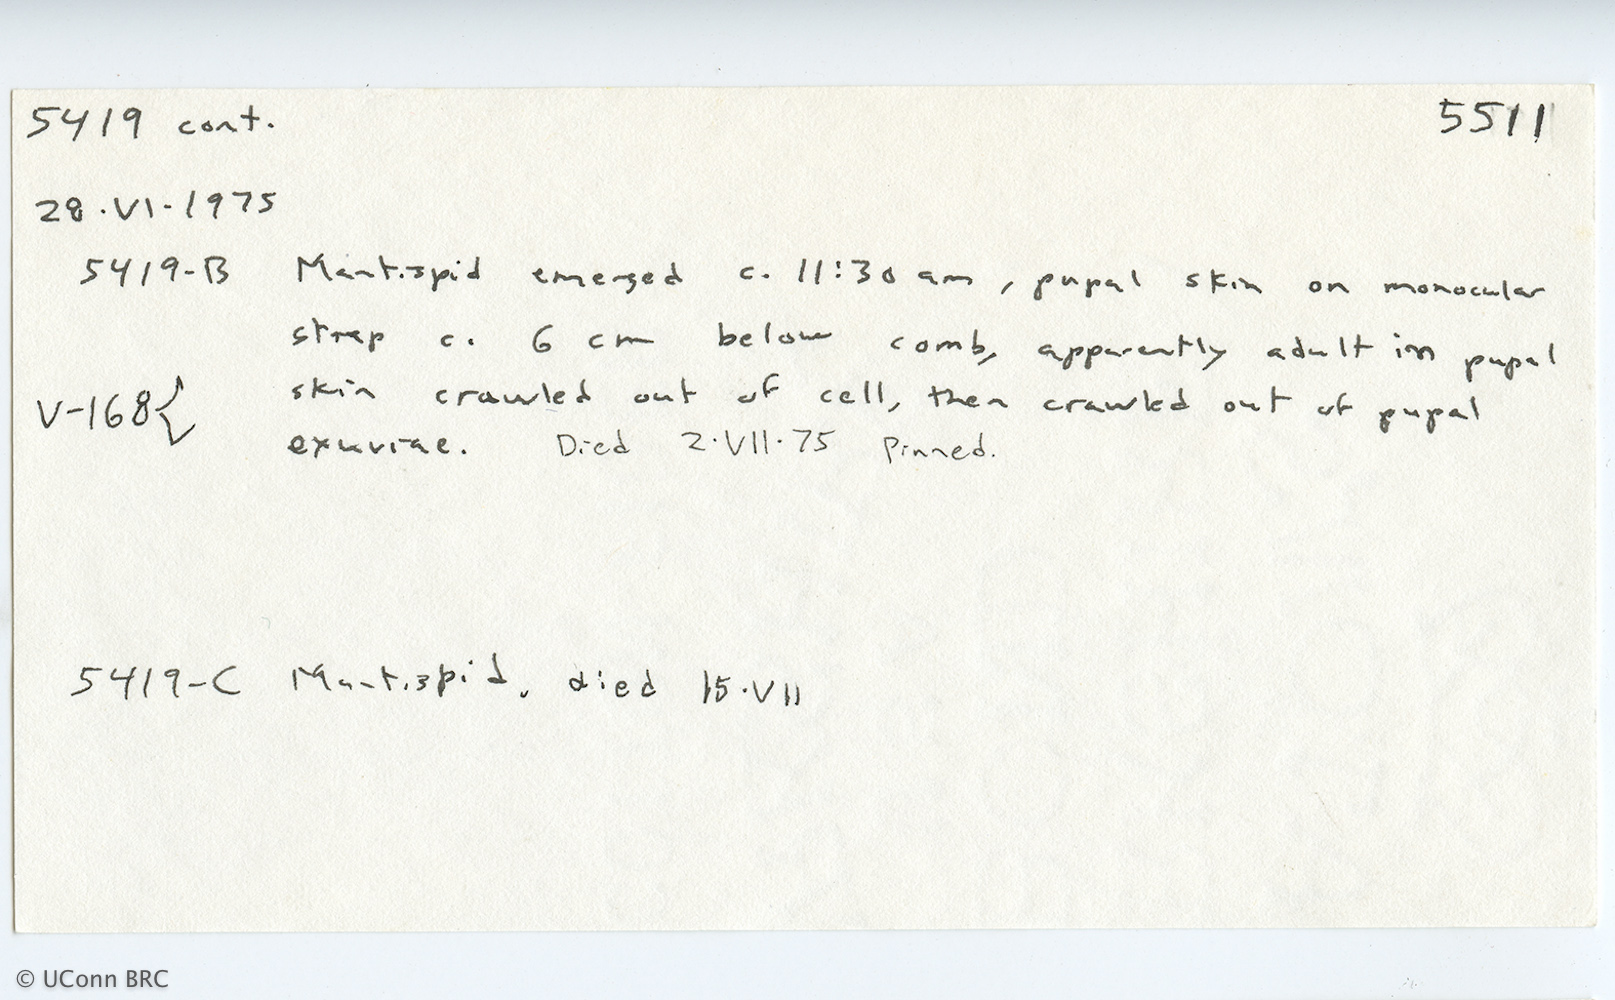 5419 cont.
5511
28·VI-1975
5419-B Mantispid emerged c. 11:30 am, pupal skin on monocular
strap c. 6 cm below comb, apparently adult in pupal
V-168{ skin crawled out of cell, then crawled out of pupal
exuviae. Died 2·VII·75 Pinned.
5419-C Mantispid, died 15·VII
© UConn BRC